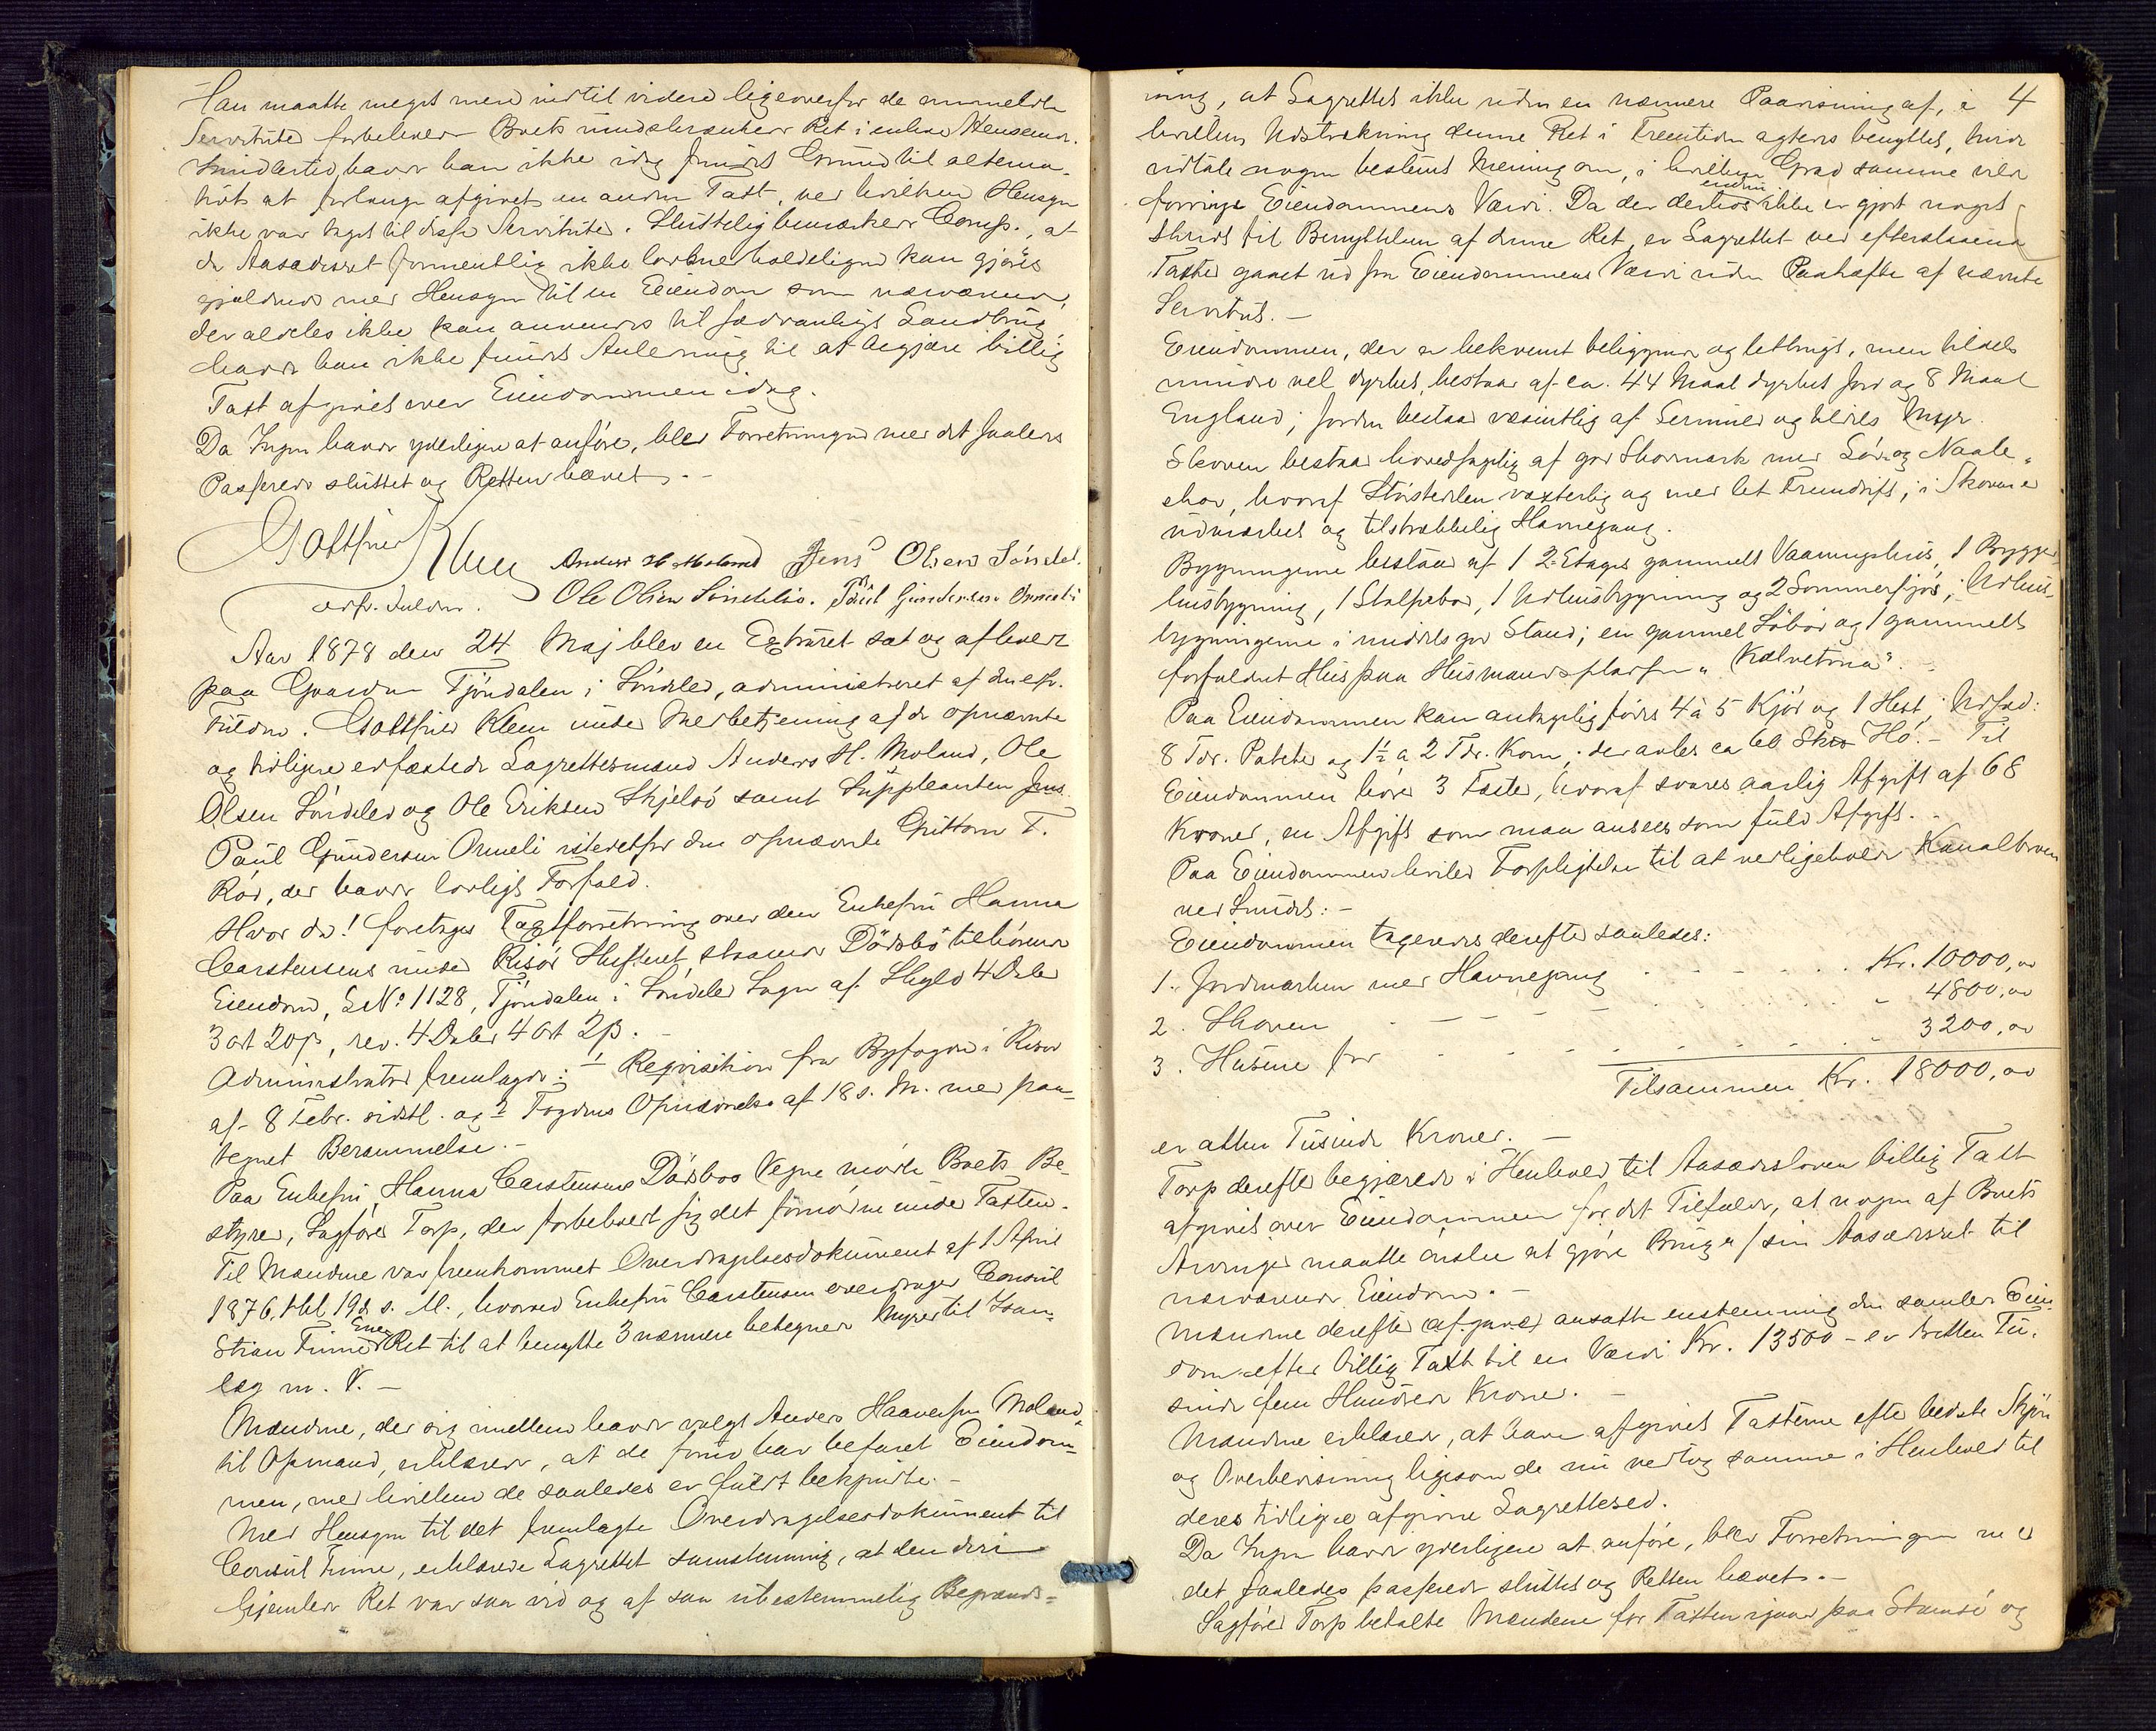 Han maatte meget mere indtil videre ligeoverfor de anmeldte
Servituter forbeholde Boets indskrænkede Ret i enhver Henseende.
Imidlertid havde han ikke idag fundet Grund til alterna-
tivt at forlange afgivet en anden Taxt, ved hvilken Hensyn
ikke var taget til disse Servituter. Sluttelig bemærkede Comp., at
da Aasædesret formentlig ikke lovmedholdeligen kan gjøres
gjældende med Hensyn til en Eiendom som nærværende,
der aldeles ikke kan anvendes til sædvanligt Landbrug,
havde han ikke fundet Anledning til at begjære billig
Taxt afgivet over Eiendommen idag.
Da Ingen havde yderligere at anføre, blev Forretningen med det saaledes
Passerede sluttet og Retten hævet. -
Gottfried Klem Anders H. Moland Jens Olsen Söndel.
edsv. Fuldm. Ole Olsen Söndeled. Paul Gundersen Ormeli
Aar 1878 den 24 Maj blev en Extraret sat og afholdt
paa Gaarden Tjöndalen i Söndeled, administreret af den edsv.
Fuldm. Gottfried Klem under Medbetjening af de opnævnte
og tidligere edfæstede Lagrettesmænd Anders H. Moland, Ole
Olsen Söndeled og Ole Eriksen Skjelsö samt Suppleanten Jens
Paul Gundersen Ormeli istedetfor den opnævnte Guttorm T.
Röd, der havde lovligt Forfald.
Hvor da! foretages Taxtforretning over den Enkefru Hanna
Carstensens under Risör Skifteret staaende Dödsbo tilhörende
Eiendom, L No 1128, Tjöndalen i Söndeled Sogn af Skyld 4 Daler
3 ort 20 ß, rev. 4 Daler 4 ort 2 ß. -
Administrator fremlagde: 1 Reqvisition fra Byfogden i Risör
af 8 Febr. sidstl. og 2 Fogdens Opnævnelse af 18 s. M. med paa-
tegnet Berammelse. -
Paa Enkefru Hanna Carstensens Dödsbos Vegne mödte Boets Be-
styrer, Sagförer Torp, der forbeholdt sig det Fornödne under Taxten.
Til Mændene var fremkommet Overdragelsesdokument af 1 April
1876, thl. 19de s. M., hvorved Enkefru Carstensen overdrager Consul
Stian Finne Ene Ret til at benytte 3 nærmere betegnede Myrer til Isan-
læg m. V. -
Mændene, der sig imellem havde valgt Anders Haaversen Moland
til Opmand, erklærede, at de forud har befaret Eiendom-
men, med hvilken de saaledes er fuldt bekjendte. -
Med Hensyn til det fremlagte Overdragelsesdokument til
Consul Finne, erklærede Lagrettet samstemmig, at den deri
hjemlede Ret var saa vid og af saa ubestemmelig Begrænds-
4
ning, at Lagrettet ikke uden en nærmere Paavisning af, i
hvilken Udstrækning denne Ret i Fremtiden agtedes benyttet, turde
udtale nogen bestemt Mening om, i hvilken Grad samme vilde
forringe Eiendommens Værdi. Da der derhos endnu ikke er gjort noget
Skridt til Benyttelsen af denne Ret, er Lagrettet ved efterstaaende
Taxter gaaet ud fra Eiendommens Værdi uden Paahefte af nævnte
Servitut. -
Eiendommen, der er bekvemt beliggende og letbrugt, men tildels
mindre vel dyrket, bestaar af ca. 44 Maal dyrket Jord og 8 Maal
England; Jorden bestaar væsentlig af Sermuld og tildels Myr.
Skoven bestaar hovedsagelig af god Skovmark med Löv og Naale-
skov, hvoraf Störstedelen voxterlig og med let Fremdrift; i Skoven er
udmærket og tilstrækkelig Havnegang.
Bygningerne bestaar af 1 2 Etages gammelt Vaaningshus, 1 Brygger-
husbygning, 1 Stolpebod, 1 Udhusbygning og 2 Sommerfjös; Udhus-
bygningerne i middels god Stand; en gammel Söbod og 1 gammelt
forfaldent Hus paa Husmandspladsen "Kalvetrua". -
Paa Eiendommen kan antagelig födes 4 à 5 Kjör og 1 Hest; Udsæd:
8 Tdr. Poteter og 1½ à 2 Tdr. Korn; der avles ca 60 Hö. - Til
Eiendommen hörer 3 Fæster, hvoraf svares aarlig Afgift af 68
Kroner, en Afgift som man ansees som fuld Afgift. -
Paa Eiendommen hviler Forpligtelse til at vedligeholde Kanalbroen
ved Sundet: -
Eiendommen taxeredes derefter saaledes:
1. Jordmarken med Havnegang . . . . . Kr. 10000,00
2. Skoven - - - . . . . - 4800,00
3. Husene for - - . . . . . - 3200,00
Tilsammen Kr. 18000,00
er atten Tusinde Kroner. -
Torp derefter begjærede i Henhold til Aasædesloven billig Taxt
afgivet over Eiendommen for det Tilfælde, at nogen af Boets
Arvinger maatte önske at gjöre Brug af sin Aasædesret til
nærværende Eiendom. -
Mændene derefter ansatte enstemmig den samlede Eien-
dom efter billig Taxt til en Værdi Kr. 13500 - er tretten Tu-
sinde fem Hundrede Kroner. -
Mændene erklærede, at have afgivet Taxterne efter bedste Skjön
og Overbevisning ligesom de nu vedtog samme i Henhold til
deres tidligere afgivne Lagrettesed.
Da Ingen havde yderligere at anföre, blev Forretningen med
det saaledes passerede sluttet og Retten hævet. -
Sagförer Torp betalte Mændene for Taxten igaar paa Stamsö og